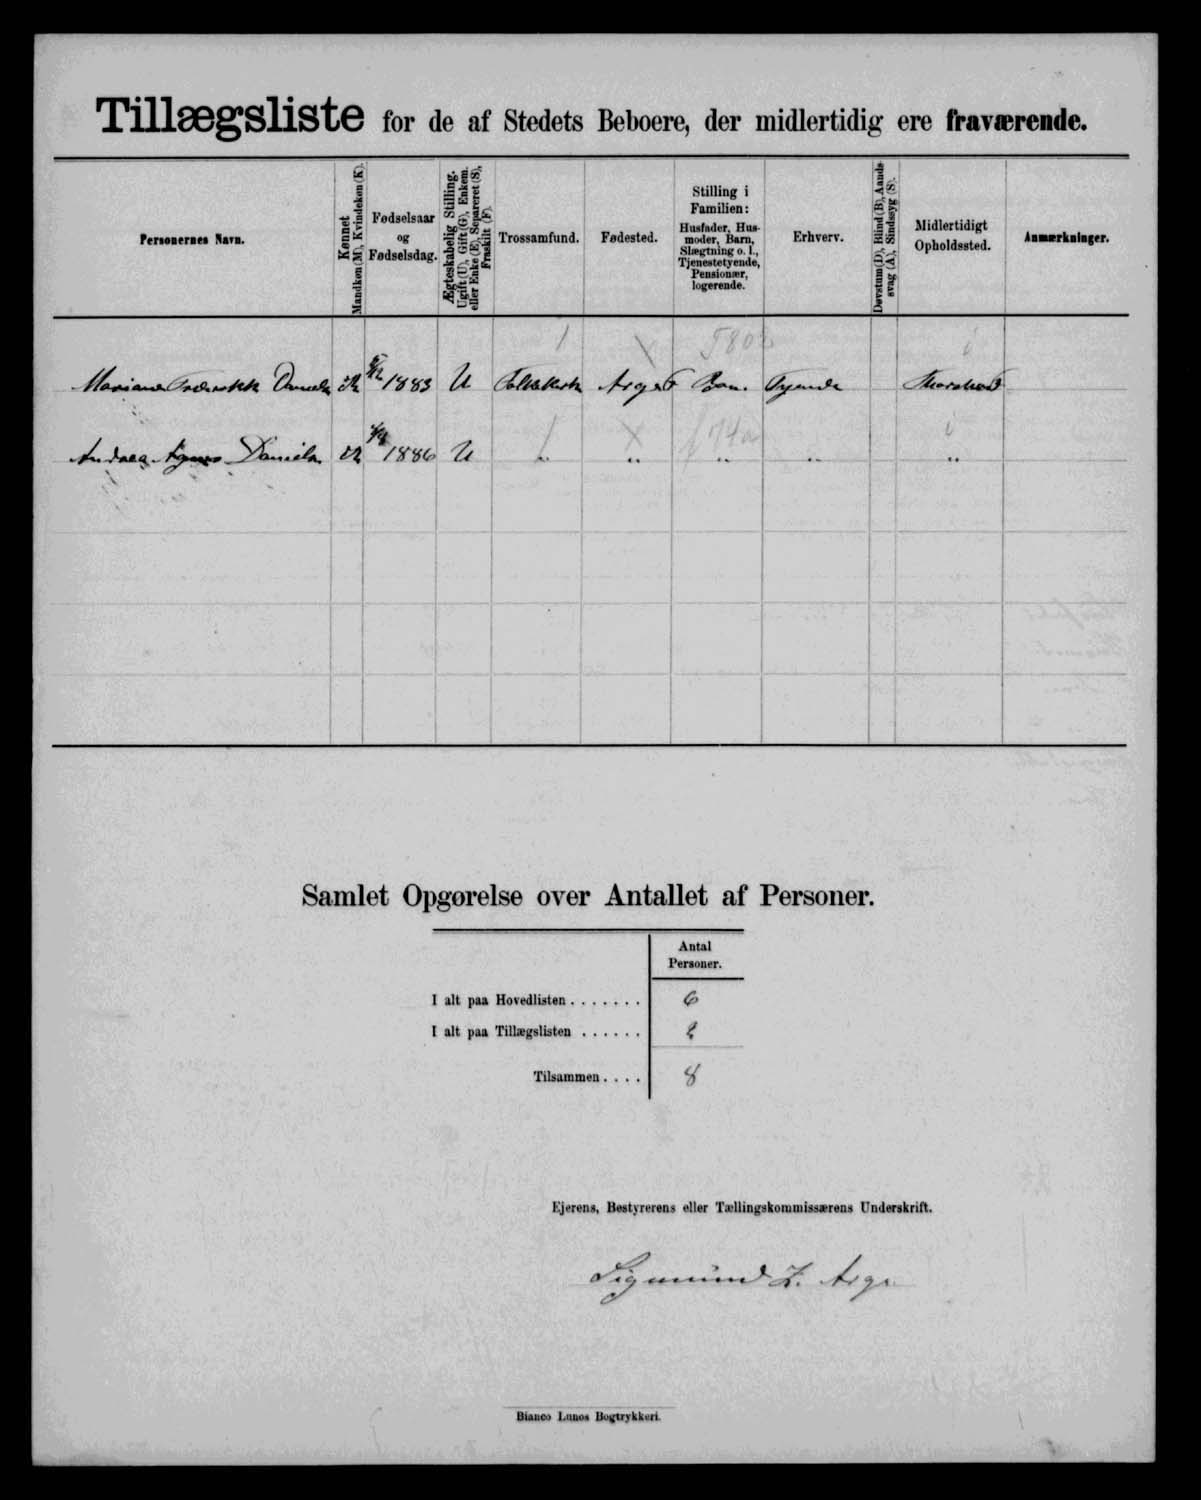 Tillægsliste for de af Stedets Beboere, der midlertidig ere fraværende.
Personernes Navn.
Kønnet
Mandkøn (M), Kvindekøn (K).
Fødselsaar
og
Fødselsdag.
Ægteskabelig Stilling.
Ugift (U), Gift (G), Enkem.
eller Enke (E), Separeret (S),
Fraskilt (F).
Trossamfund.
Fødested.
Stilling i
Familien:
Husfader, Hus-
moder, Barn,
Slægtning o. l.,
Tjenestetyende,
Pensionær,
logerende.
Erhverv.
Døvstum (D), Blind (B), Aands-
svag (A), Sindssyg (S).
Midlertidigt
Opholdssted.
Anmærkninger.
1883 U Folkekirk Barn Tyende
Andrea 1886 U „ „ „ „ „
Samlet Opgørelse over Antallet af Personer.
Antal
Personer.
I alt paa Hovedlisten . . . . . . . 6
I alt paa Tillægslisten . . . . . . 2
Tilsammen . . . . 8
Ejerens, Bestyrerens eller Tællingskommissærens Underskrift.
Sigmund Z. Arge
Bianco Lunos Bogtrykkeri.